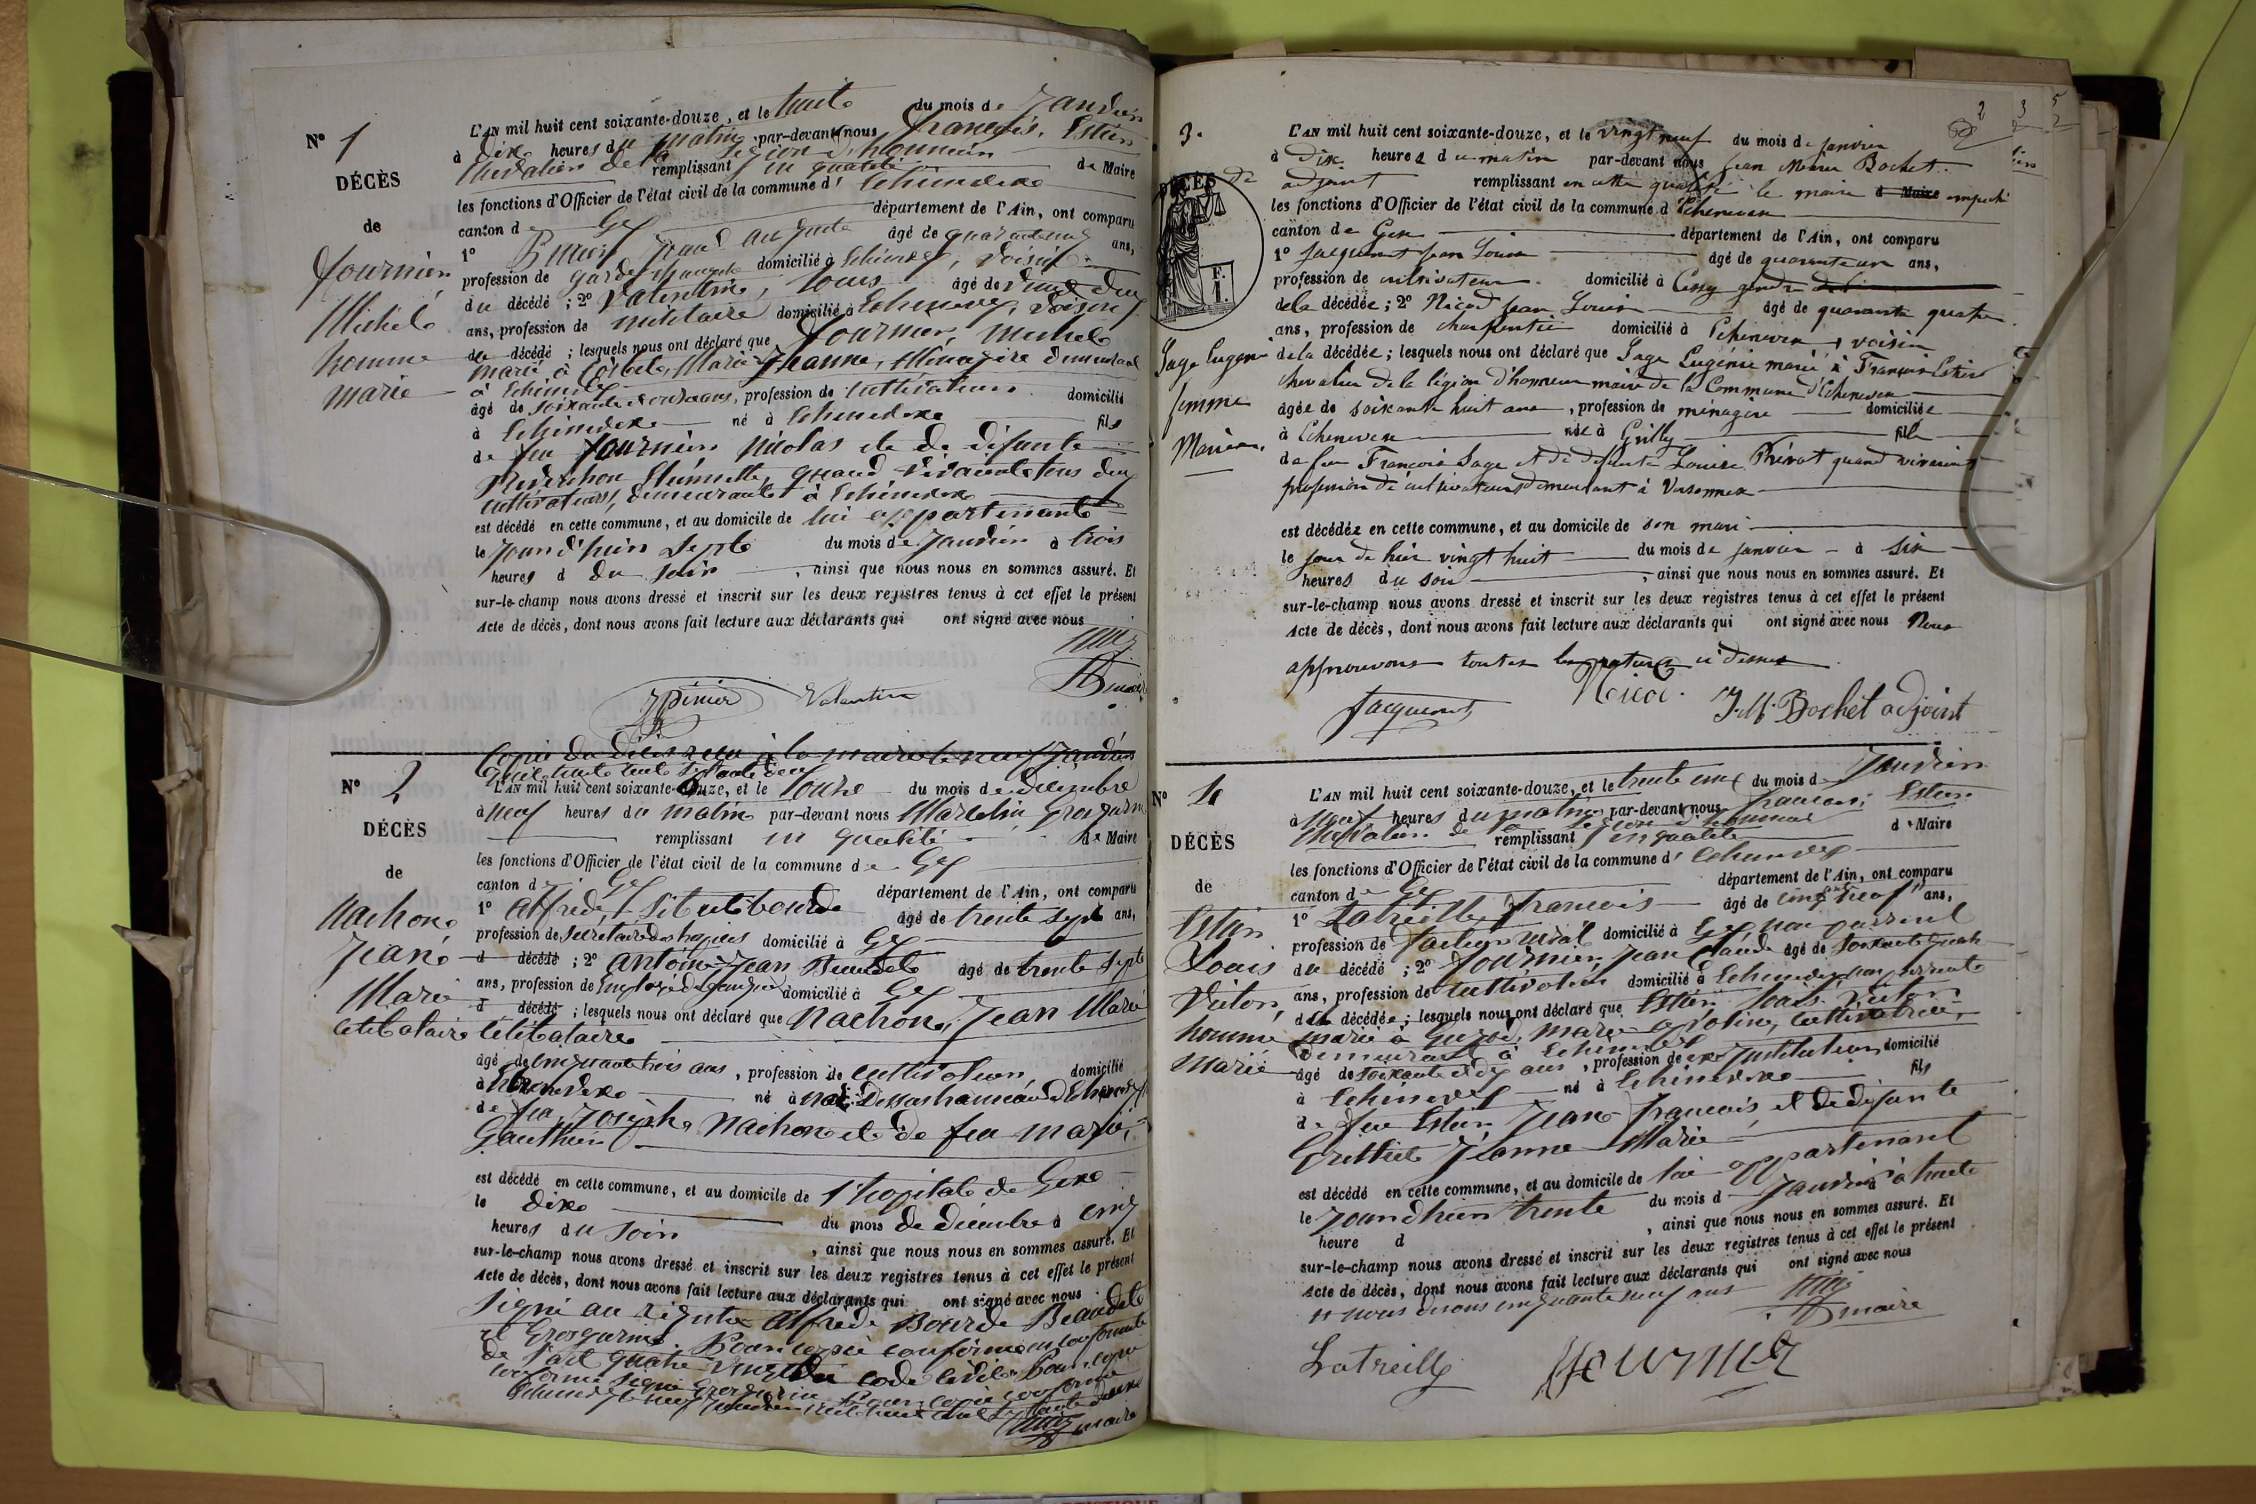 N° 1
DÉCÈS
de
fournier
Michel
homme
marié
L'AN mil huit cent soixante-douze, et le huit du mois de Janvier
à dix heures du matin par-devant nous françois Estier
Chevalier de la Légion d'honneur remplissant en qualité de Maire
les fonctions d'Officier de l'état civil de la commune d' Echenevex
canton de Gex département de l'Ain, ont comparu
1° Jean auguste âgé de ans,
profession de garde domicilié à Echenevex, voisin
du décédé ; 2° Valentin, Louis âgé de vingt deux
ans, profession de militaire domicilié à Echenevex, voisin
du décédé ; lesquels nous ont déclaré que fournier, Michel
marié à Marie Jeanne, Ménagère demeurant
à Echenevex
âgé de soixante et onze ans, profession de cultivateur domicilié
à Echenevex né à Echenevex fils
de feu fournier Nicolas et de défunte
quand vivaient tous deux
cultivateurs, demeurant à Echenevex
est décédé en cette commune, et au domicile de lui appartenant
le jour d'hier sept du mois de Janvier à trois
heures d du soir, ainsi que nous nous en sommes assuré. Et
sur-le-champ nous avons dressé et inscrit sur les deux registres tenus à cet effet le présent
Acte de décès, dont nous avons fait lecture aux déclarants qui ont signé avec nous
Valentin
N° 2
DÉCÈS
de
Nachon
Jean
Marie
célibataire
Copie du décès reçu à la mairie le neuf Janvier
mil huit cent septante deux
L'AN mil huit cent soixante-onze, et le douze du mois de décembre
à neuf heures du matin par-devant nous Marcelin Grosgurin
remplissant en qualité de Maire
les fonctions d'Officier de l'état civil de la commune de Gex
canton de Gex département de l'Ain, ont comparu
1° alfred, bourde âgé de trente sept ans,
profession de secrétaire domicilié à Gex
d décédé ; 2° antoine Jean âgé de trente sept
ans, profession de Employé domicilié à Gex
d décédé ; lesquels nous ont déclaré que Nachon, Jean Marie
célibataire
âgé de cinquante trois ans, profession de cultivateur domicilié
à Echenevex né à hameau d'Echenevex fils
de feu Joseph Nachon et de feu marie
Gauthier
est décédé en cette commune, et au domicile de l'hopital de Gex
le dix du mois de décembre à cinq
heures du soir, ainsi que nous nous en sommes assuré. Et
sur-le-champ nous avons dressé et inscrit sur les deux registres tenus à cet effet le présent
Acte de décès, dont nous avons fait lecture aux déclarants qui ont signé avec nous
signé au registre alfred Bourde Beaudet
et Grosgurin. Pour copie conforme en conformité
de l'art quatre vingt du code civil. Pour copie
conforme signé Grosgurin Pour copie conforme
Echenevex le neuf Janvier mil huit cent septante deux
maire
2 3 5
3.
DÉCÈS de
F. I.
Sage Eugénie
femme
Mariée
L'AN mil huit cent soixante-douze, et le vingt neuf du mois de janvier
à Dix heures du matin par-devant nous Jean Marie Bochet
adjoint remplissant en cette qualité le maire d Maire empeché
les fonctions d'Officier de l'état civil de la commune d'Echenevex
canton de Gex département de l'Ain, ont comparu
1° Jacquemet Jean Louis âgé de quarante un ans,
profession de cultivateur domicilié à Cessy gendre
de la décédée ; 2° Nicod Jean Louis âgé de quarante quatre
ans, profession de charpentier domicilié à Echenevex, voisin
de la décédée ; lesquels nous ont déclaré que Sage Eugénie mariée à François Estier
chevalier de la légion d'honneur maire de la Commune d'Echenevex
âgée de soixante huit ans, profession de ménagère domiciliée
à Echenevex née à Grilly fille
de feu François Sage et de défunte Louise Prévot quand vivaient
profession de cultivateurs demeurant à Vesonnex
est décédée en cette commune, et au domicile de son mari
le jour de hier vingt huit du mois de janvier à six
heures du soir, ainsi que nous nous en sommes assuré. Et
sur-le-champ nous avons dressé et inscrit sur les deux registres tenus à cet effet le présent
Acte de décès, dont nous avons fait lecture aux déclarants qui ont signé avec nous Nous
approuvons toutes les ratures ci dessus
Jacquemet Nicod J. M. Bochet adjoint
N° 4
DÉCÈS
de
Estier
Louis
Victor
homme
marié
L'AN mil huit cent soixante-douze, et le trente un du mois de Janvier
à neuf heures du matin par-devant nous françois Estier
Chevalier de la Légion d'honneur remplissant en qualité de Maire
les fonctions d'Officier de l'état civil de la commune d'Echenevex
canton de Gex département de l'Ain, ont comparu
1° Latreille françois âgé de ans,
profession de domicilié à Gex, non parent
du décédé ; 2° fournier Jean Claude âgé de soixante quatre
ans, profession de cultivateur domicilié à Echenevex, non parent
du décédé ; lesquels nous ont déclaré que Estier Louis Victor
marié à Marie cultivatrice,
demeurant à Echenevex
âgé de soixante et dix ans, profession de ex Instituteur domicilié
à Echenevex né à Echenevex fils
de feu Estier Jean françois et de défunte
Jeanne Marie
est décédé en cette commune, et au domicile de lui appartenant
le jour d'hier trente du mois d Janvier à huit
heure d, ainsi que nous nous en sommes assuré. Et
sur-le-champ nous avons dressé et inscrit sur les deux registres tenus à cet effet le présent
Acte de décès, dont nous avons fait lecture aux déclarants qui ont signé avec nous
nous disons cinquante neuf ans
maire
Latreille fournier